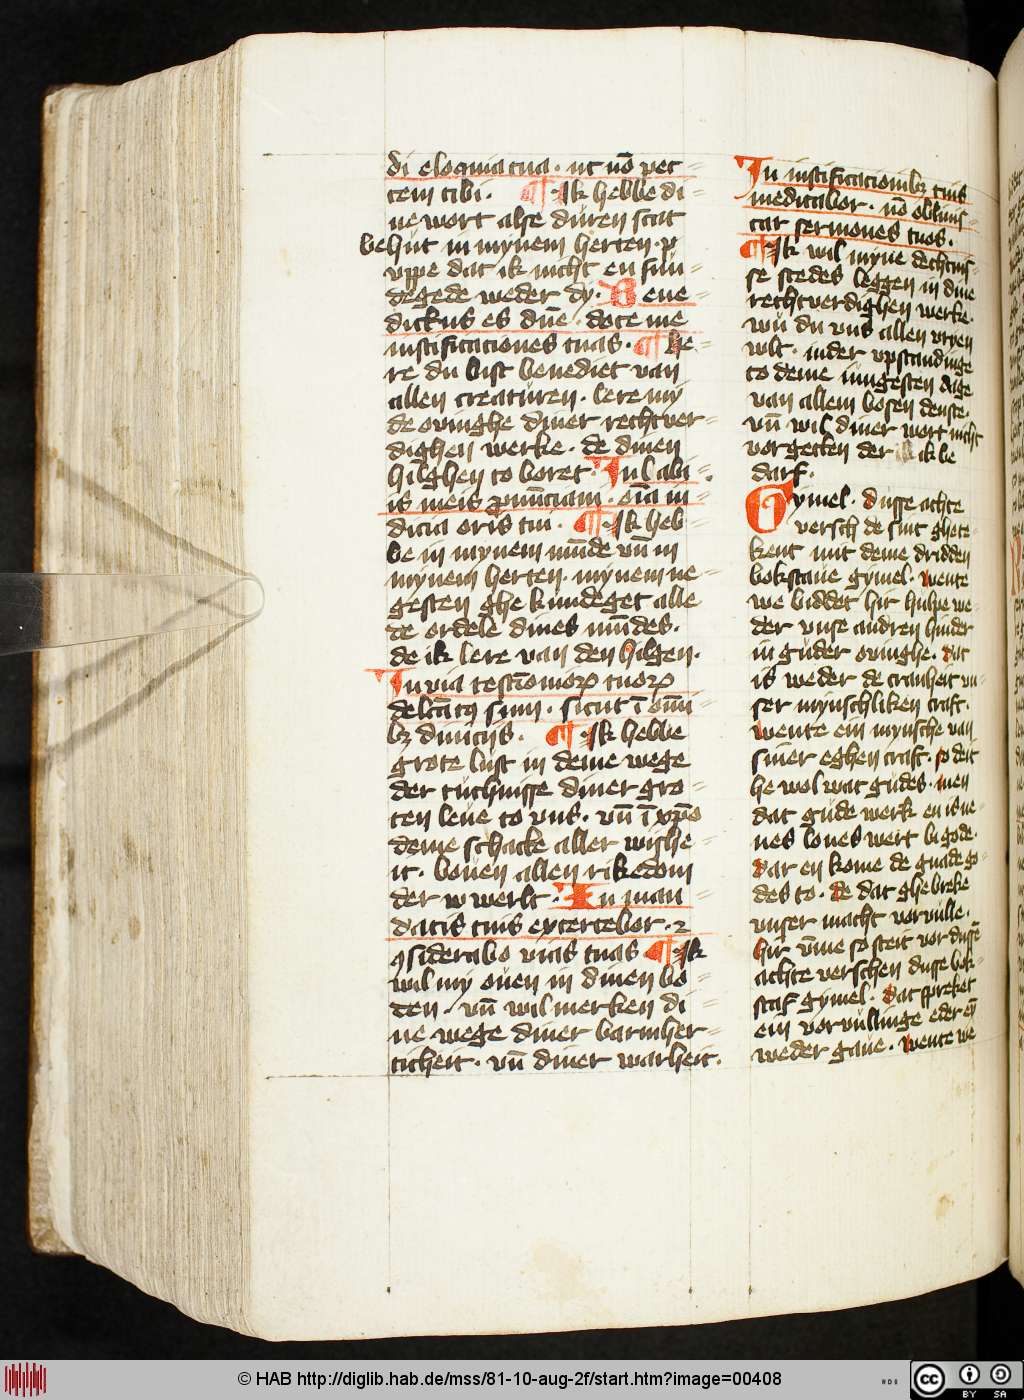 di eloquia tua · ut nō pec
cem tibi · ¶ Ik hebbe di
ne wort alse düren scat
behüt in mynem herten · p
uppe dat ik nicht en sun
degede weder dy · Bene
dictus es dn̄e · doce me
iustificationes tuas · ¶ he
re du bist benediet van
allen creatüren · lere my
de ovinghe diner rechtver
dighen werke · de dinen
hilghen to boret · In labi
is meis ꝓnūciaui · oīa iu
dicia oris tui · ¶ Ik heb
be in mynem mūde vn̄ in
mynem herten · mynem ne
gesten ghe kundeget alle
de ordele dines mūdes ·
de ik lere van den hilgen ·
In via testīomoꝝ tuoꝝ
delcātꝰ sum · sicut ī omī
bꝫ diuicijs · ¶ Ik hebbe
grote lust in deme wege
der tüchnisse diner gro
ten leue to vns · vn̄ ī xp̄o
deme schacke aller wijshe
it · bouen allen rikedom
der w werlt · In man
datis tuis exercebor · ⁊
ꝯsiderabo vias tuas ¶ Ik
wil my ouen in dinen bo
den · vn̄ wil merken di
ne wege diner barmher
ticheit · vn̄ diner warheit ·
In iustificacionibꝫ tuis
meditabor · nō obliuis
car sermones tuos ·
¶ Ik wil myne dechtnis
se stedes leggen in dine
rechtverdighen werke ·
wu du vns allen vryen
wlt · in der vpstandinge
to deme iungesten dage
van allem bosen denste ·
vn̄ wil diner wort nicht
vorgetten der ik be
darf ·
Gymel · dusse achte
versch de sint ghete
kent mit deme dridden
bokstaue gymel · wente
we biddet hir hulpe we
der vnse andren hinder
in guder ovinghe · dat
is weder de cranheit vn
ser mynschliken craft ·
wente ein mynsche van
siner eghen craft · so deit
he wol wat gudes · men
dat gude werk en is ne
nes loues wert bi gode ·
dar en kome de gnade go
des to · de dat ghebreke
vnser macht vorvulle ·
hir v̄me so steit vor dussē
achte verschen dusse bok
staf gymel · dat spreket
ein vorvullinge eder eȳ
weder gaue · wente we
© HAB http://diglib.hab.de/mss/81-10-aug-2f/start.htm?image=00408
cc BY SA